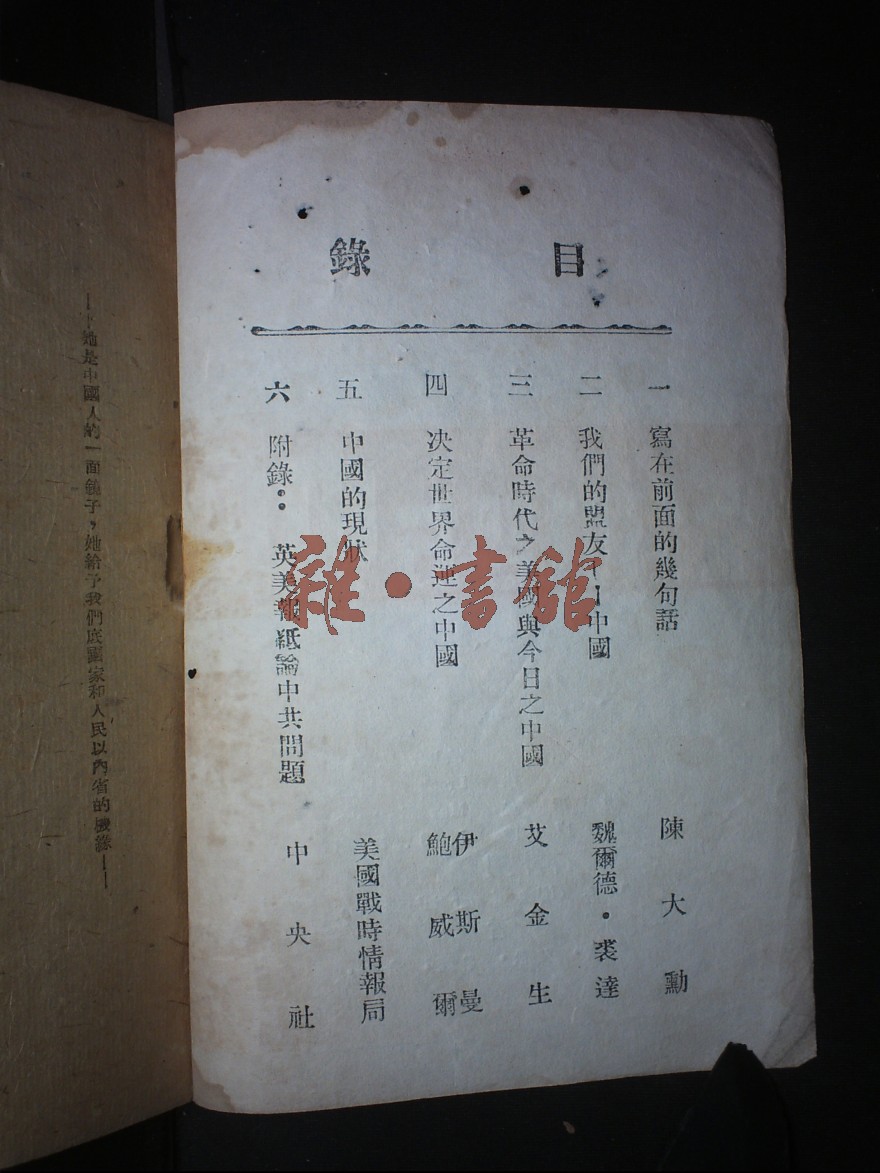 目錄
一 寫在前面的幾句話 陳大勳
二 我們的盟友——中國 魏爾德·裘達
三 革命時代之美國與今日之中國 艾金生
四 决定世界命運之中國 伊斯曼 鮑威爾
五 中國的現狀 美國戰時情報局
六 附錄：英美報紙論中共問題 中央社
——她是中國人的一面鏡子，她給予我們底國家和人民以內省的機緣——
雜·書館